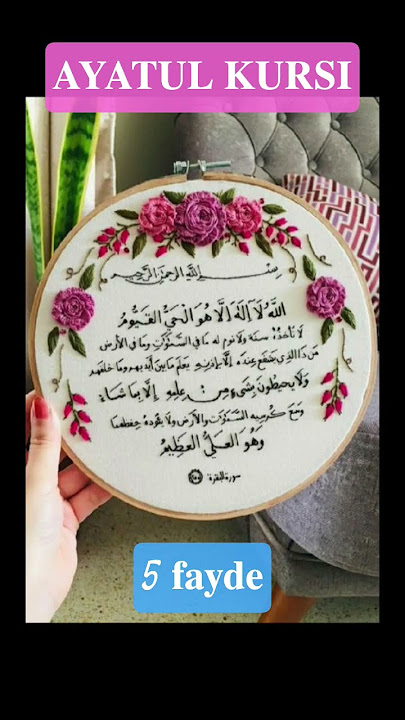 AYATUL KURSI
بِسْمِ اللهِ الرحمن الرحيم
اللهُ لَا إِلَهَ إِلَّا هُوَ الْحَيُّ الْقَيُّومُ
لَا تَأْخُذُهُ سِنَةٌ وَلَا نَوْمٌ لَهُ مَا فِي السَّمَوَاتِ وَمَا فِي الأَرْضِ
مَنْ ذَا الَّذِي يَشْفَعُ عِنْدَهُ إِلَّا بِإِذْنِهِ يَعْلَمُ مَا بَيْنَ أَيْدِيهِمْ وَمَا خَلْفَهُمْ
وَلَا يُحِيطُونَ بِشَيْءٍ مِنْ عِلْمِهِ إِلَّا بِمَا شَاءَ
وَسِعَ كُرْسِيُّهُ السَّمَوَاتِ وَالأَرْضَ وَلَا يَئُودُهُ حِفْظُهُمَا
وَهُوَ الْعَلِيُّ الْعَظِيمُ
سورة البقرة
5 fayde